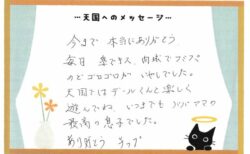 …天国へのメッセージ…
今まで 本当にありがとう
毎日 楽でキス、肉球でフミフミ
のどゴロゴロが いやしでした。
天国では デールくんと楽しく
遊んでね。いつまでも
最高の息子でした。
ありがとう チップ